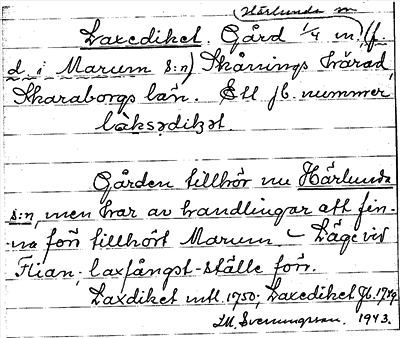 Härlunda sn
Laxediket. Gård 1/4 m. (f.
d. i Marum s:n) Skånings härad,
Skaraborgs län. Ett jb. nummer
làksədikət.
Gården tillhör nu Härlunda
s:n, men har av handlingar att fin-
na förr tillhört Marum. – Läge vid
Flian; laxfångst-ställe förr.
Laxdiket mtl. 1750; Laxediket Jb. 1789
Svenungsson. 1943.